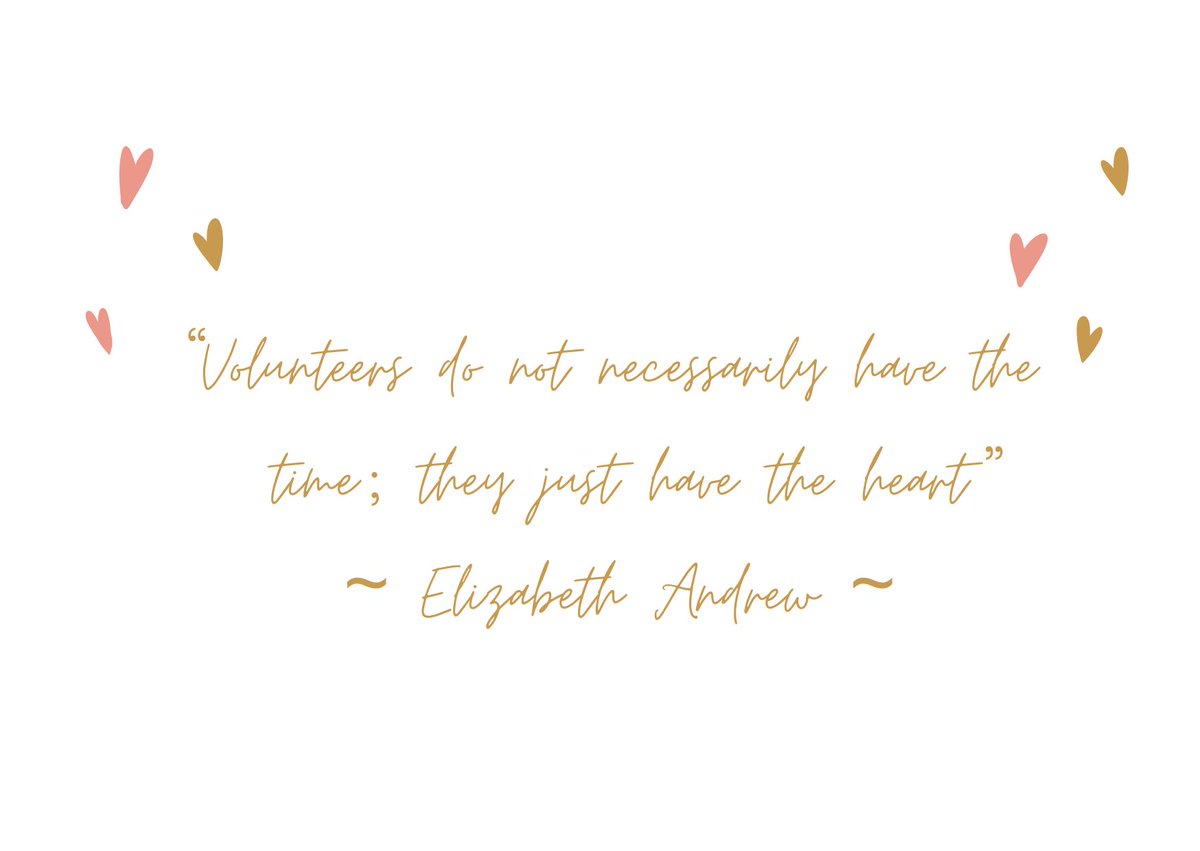 “Volunteers do not necessarily have the
time; they just have the heart”
~ Elizabeth Andrew ~